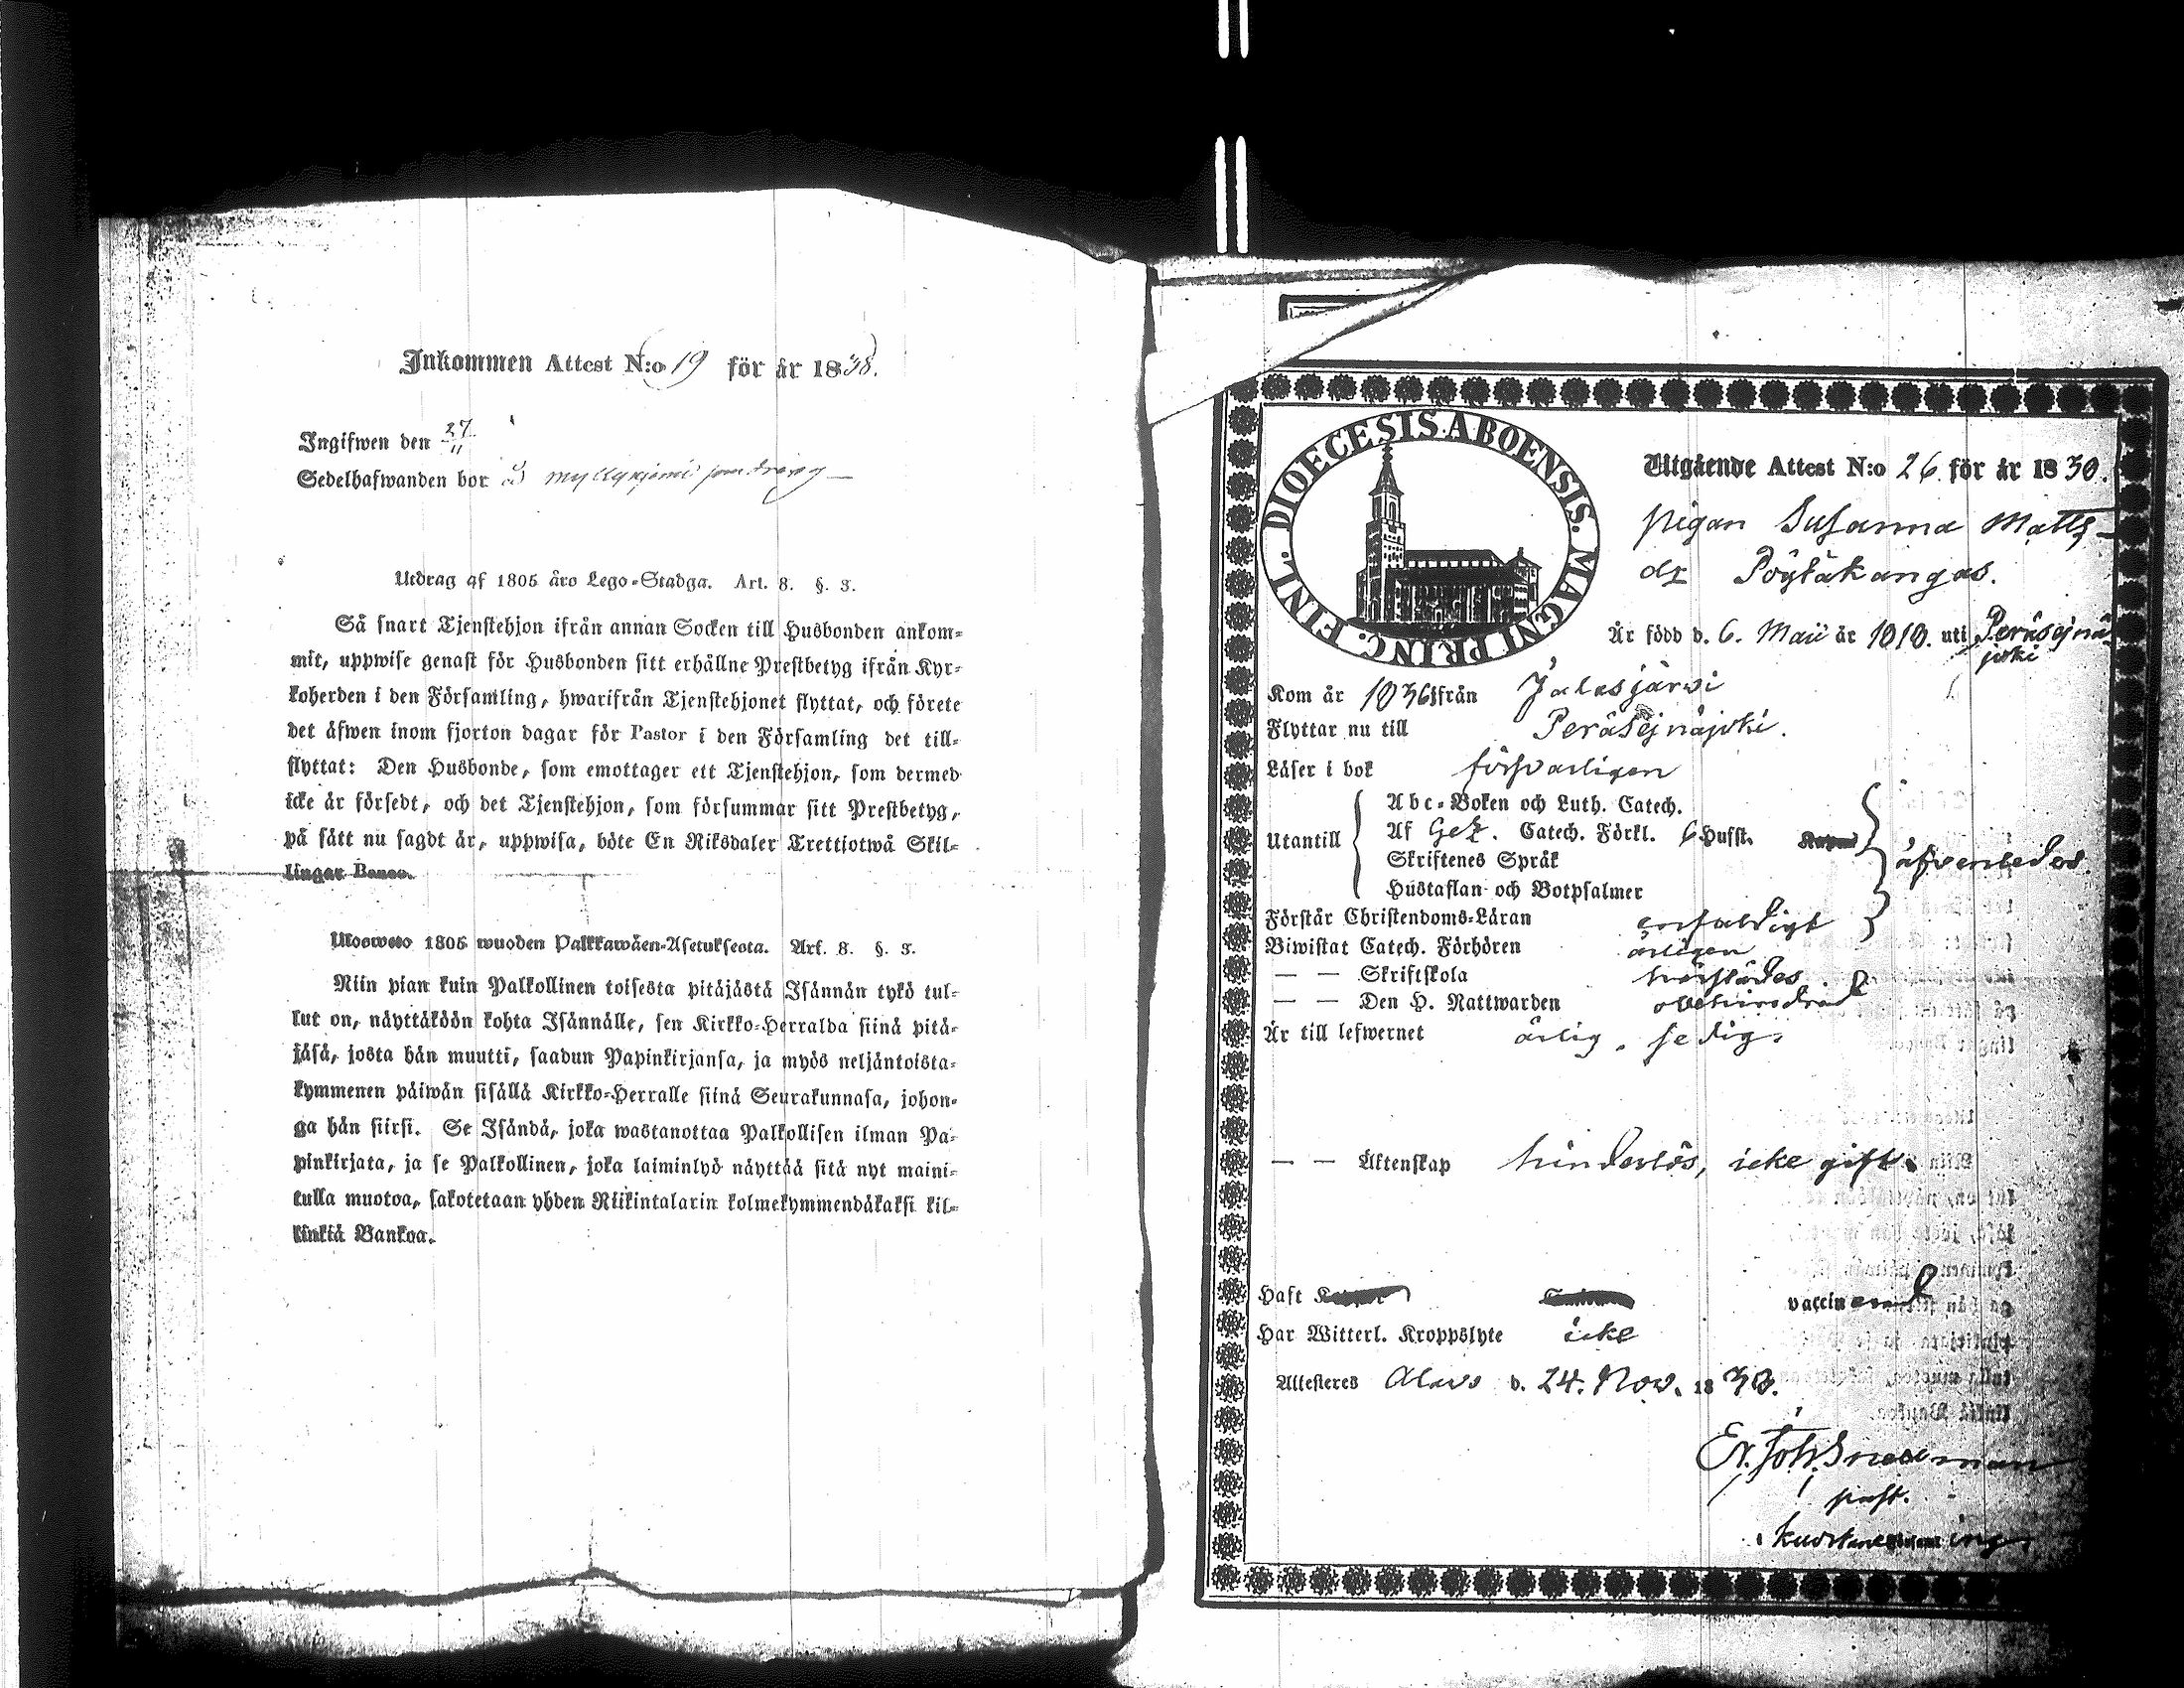 Inkommen Attest N:o 19 för år 1838.
Ingifwen den 27/11
Sedelhafwanden bor
Utdrag af 1805 års Lego-Stadga. Art. 8. §. 3.
Så snart Tjenstehjon ifrån annan Socken till Husbonden ankom-
mit, uppwise genast för Husbonden sitt erhållne Prestbetyg ifrån Kyr-
koherden i den Församling, hwarifrån Tjenstehjonet flyttat, och förete
det äfwen inom fjorton dagar för Pastor i den Församling det till-
flyttat: Den Husbonde, som emottager ett Tjenstehjon, som dermed
icke är försedt, och det Tjenstehjon, som försummar sitt Prestbetyg,
på sätt nu sagdt är, uppwisa, böte En Riksdaler Trettiotwå Skil-
lingar Banco.
Ulosweto 1805 wuoden Palkkawäen-Asetuksesta. Art. 8. §. 3.
Niin pian kuin Palkollinen toisesta pitäjästä Isännän tykö tul-
lut on, näyttäköön kohta Isännälle, sen Kirkko-Herralda siinä pitä-
jäsä, josta hän muutti, saadun Papinkirjansa, ja myös neljäntoista-
kymmenen päiwän sisällä Kirkko-Herralle siinä Seurakunnasa, johon-
ga hän siirsi. Se Isändä, joka wastanottaa Palkollisen ilman Pa-
pinkirjata, ja se Palkollinen, joka laiminlyö näyttää sitä nyt maini-
tulla muotoa, sakotetaan yhden Riikintalarin kolmekymmendäkaksi kil-
linkiä Bankoa.
FINL. DIOECESIS ABOENSIS. MAGNI PRINC.
Utgående Attest N:o 26 för år 1838.
pigan Susanna Matts-
dr Pöytäkangas.
Är född d. 6. Maii år 1818. uti Peräsejnä-
joki
Kom år 1836 ifrån Jalasjärvi
Flyttar nu till Peräsejnäjoki.
Läser i bok försvarligen
Utantill
Abc-Boken och Luth. Catech.
Af Gez. Catech. Förkl. 6 Hufst.
Skriftenes Språk
Hustaflan och Botpsalmer
äfvenledes
Förstår Christendoms-Läran enfaldigt
Biwistat Catech. Förhören årligen
— — Skriftskola härstädes
— — Den H. Nattwarden obehindrad
Är till lefwernet ärlig, sedig.
— — Äktenskap hinderlös, icke gift.
Haft
vaccinerad
Har Witterl. Kroppslyte icke
Attesteras Alavo d. 24. Nov. 1838.
Er. Joh. Snellman
past.